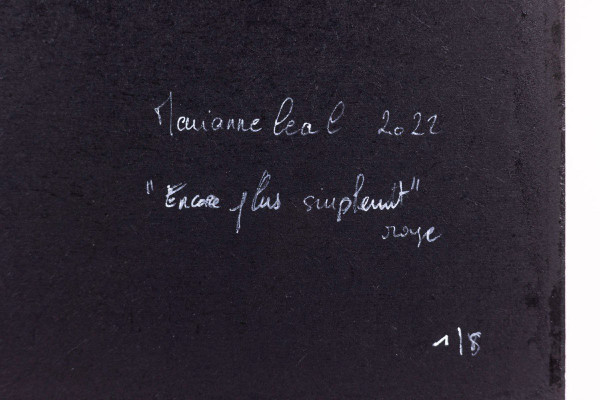 Marianne Leal 2022
"Encore plus simplement"
rouge
1/8